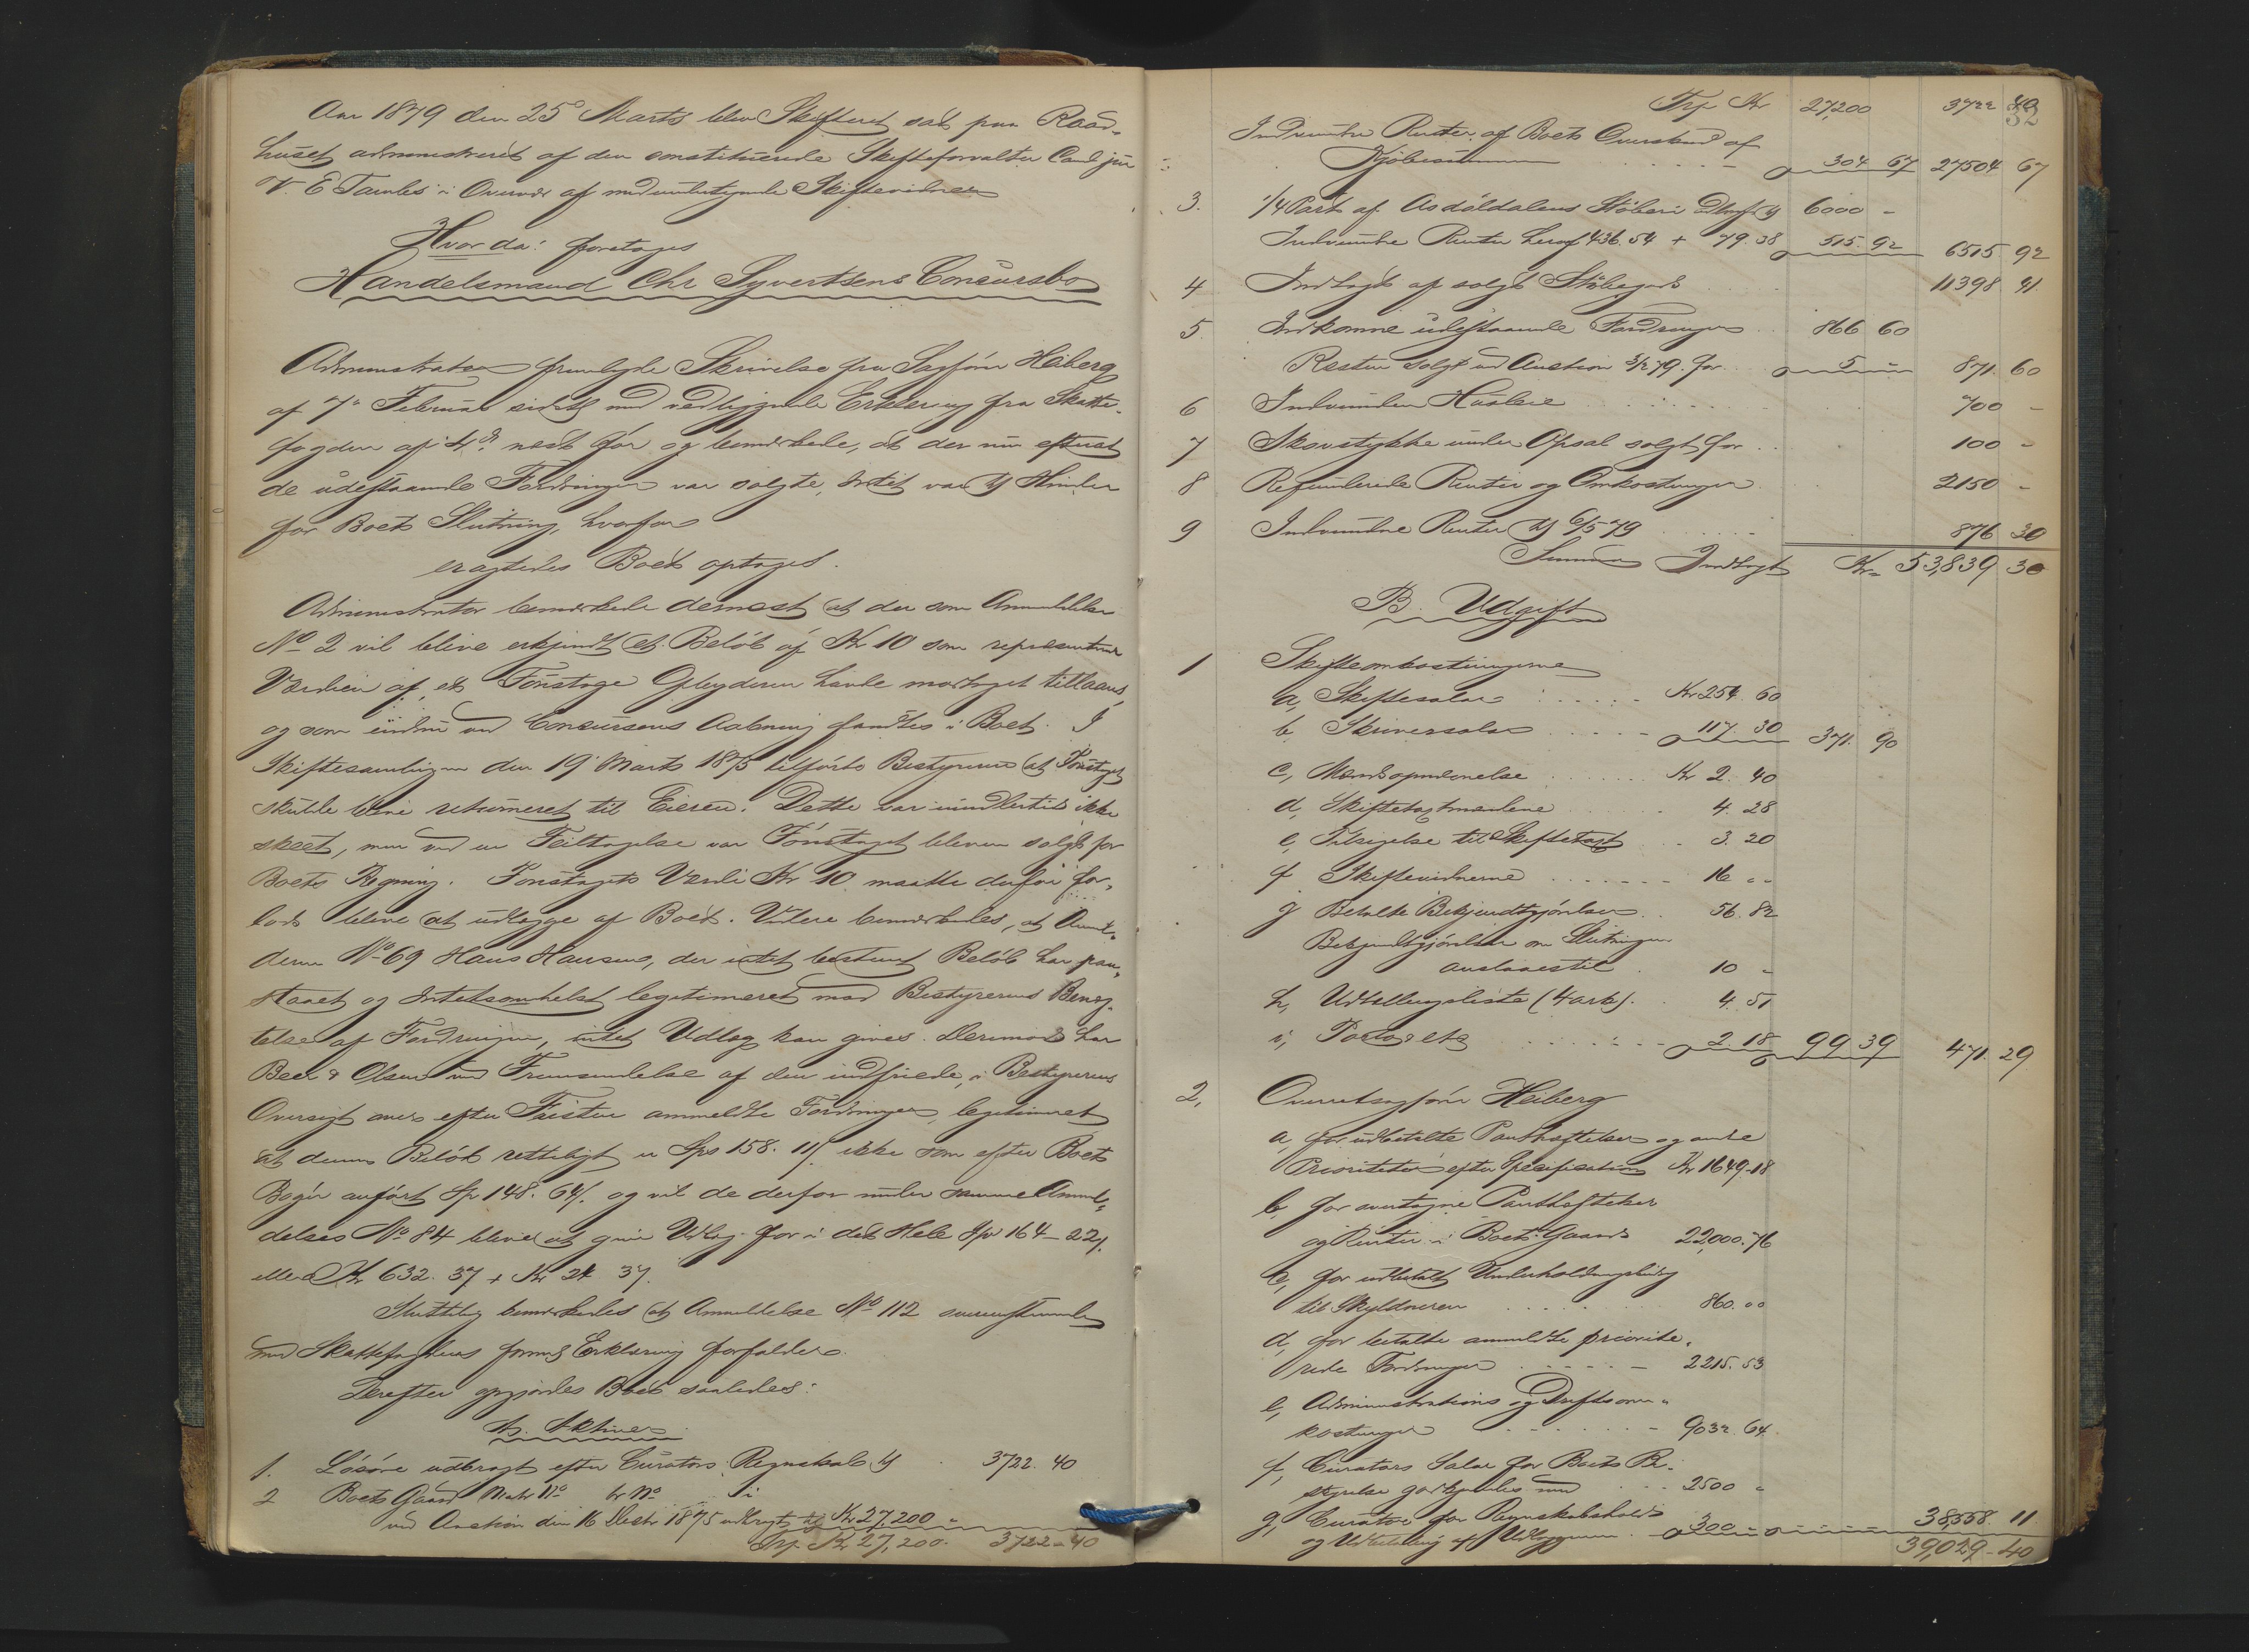 Aar 1879 den 25° Marts blev Skifteret sat paa Raad-
huset administreret af den constituerede Skifteforvalter Cand jur
V. E. i Overvær af medundertegnede Skiftevidner
Hvor da: foretoges
Handelsmand Chr Syvertsens Concursbo
Administrator fremlagde Skrivelse fra Sagfører Heiberg
af 7de Februar sidstl med vedliggende Erklæring fra Skatte-
fogden af 4de næst før og bemærkede, at der nu efterat
de udestaaende Fordringer var solgte, intet var til Hinder
for Boets Slutning, hvorfor
eragtedes Boet optaget.
Administrator bemærkede dernæst at der som Anmeldelse
No 2 vil blive erkjendt et Beløb af Kr 10 som repræsenterer
Værdien af et Foustage Gley deren havde modtaget tillaans,
og som endnu ved Concursens Aabning fandtes i Boet. I
Skiftesamlingen den 19 Marts 1875 tilførtes Bestyreren at Foustaget
skulde blive returneret til Eieren. Dette var imidlertid ikke
skeet, men ved en Feiltagelse var Foustaget bleven solgt for
Boets Regning. Foustagets Værdi Kr 10 maatte derfor for-
lods blive at udlægge af Boet. Videre bemærkedes, at Anmel-
deren No 69 Hans Hansen, der intet bestemt Beløb har paa-
staaet og Intetsomhelst legitimeret mod Bestyrerens Benæg-
telse af Fordringen, intet Udlæg kan gives. Derimod har
Beer & Olsen ved Fremsendelse af den indfriede, i Bestyrerens
Oversigt over efter Fristen anmeldte Fordringer, legitimeret
at deres Beløb retteligt er Sps 158. 11 s ikke som efter Boets
Bøger anført Sp 148. 64 s. og vil de derfor under samme Anmel-
delses No 84 blive at give Udlæg for i det Hele Sp 164 - 22 s.
eller Kr 632. 37 + Kr 24 37.
Sluttelig bemærkedes at Anmeldelse No 112 overensstemmende
med Skattefogdens formeldte Erklæring forfalder.
Derefter opgjordes Boet saaledes:
A. Aktiver
1. Løsøre udbragt efter Curators Regnskab til 3722. 40
2 Boets Gaard Matr No br No i
ved Auction den 16 Decbr 1875 udbragt til Kr 27,200 "
Trp Kr 27,200. 3722 - 40
32
Trp Kr 27,200 3722 40
Indvundne Renter af Boets Overskud af
Kjøbesummen 304 67 27504 67
3. 1/4 Part af Asdøldalens Støberi udbragt til 6000 -
Indvundne Renter heraf 436.54 + 79.38 515. 92 6515 92
4 Indtægt af solgt Støbegods 11398 41
5 Indkomne udestaaende Fordringer 866 60
Resten solgt ved Auction 3/2 79. for 5 - 871. 60
6 Indvunden Husleie 700 -
7 Skovstykke under Opsal solgt for 100 -
8 Refunderede Renter og Omkostninger 2150 -
9 Indvundne Renter til 6/5 79 876 30
Summa Indtægt Kr 53,839 30
B. Udgift
1 Skifteomkostningerne
a, Skiftesalær Kr 254. 60
b, Skriversalær 117. 30 371. 90
c, Mandsopnævnelse Kr 2. 40
d, Skiftetaxtmændene 4. 28
e, Tilsigelse til Skiftetaxt 3. 20
f Skiftevidnerne 16 "
g Betalte Bekjendtgjørelser 56. 82
Bekjendtgjørelser om Slutningen
anslaaes til 10 -
h, Udtællingsliste (4 ark). 4. 51
i, Porto etc 2. 18 99 39 471. 29
2, Overretssagfører Heiberg
a, for udbetalte Panthæftelser og andre
Prioriteter efter Specification Kr 1649.18
b, for overtagne Panthæftelser
og Renter i Boets Gaard 22,000.76
c, for udbetalt Underholdningsbidrag
til Skyldneren 860. 00
d, for betalte anmeldte priorite-
rede Fordringer 2215. 53
e, Administrations og Driftsom-
kostninger 9032. 64
f, Curators Salær for Boets Be-
styrelse godkjendes med 2500 "
g, Curator for Regnskabshold
og Udbetaling af Udlæggene 300 - 38,558. 11
39,029 - 40